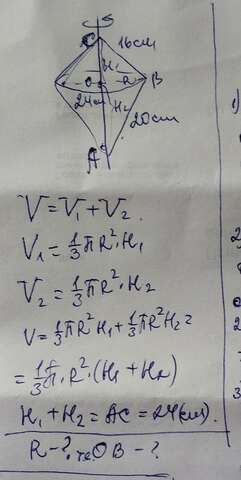 S
C
16cm
H₁
O
R
B
24cm
H₂
20cm
A
V=V₁+V₂.
V₁=1/3πR²·H₁
V₂=1/3πR²·H₂
V=1/3πR²H₁+1/3πR²H₂=
=1/3π·R²·(H₁+H₂)
H₁+H₂=AC=24(cm).
R-?, те OB-?
1)
2
3